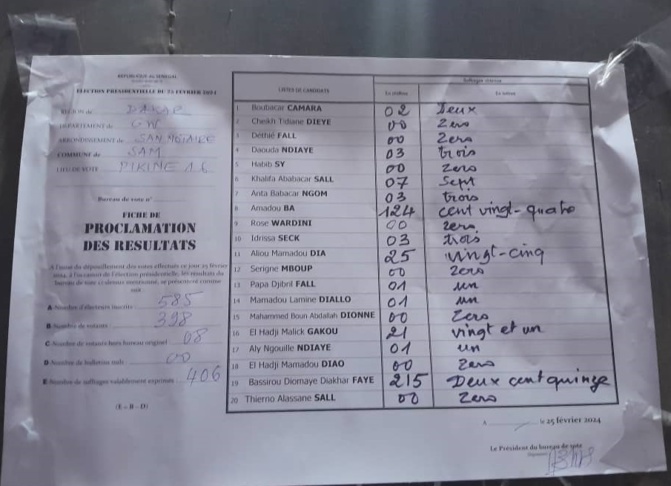 REPUBLIQUE DU SENEGAL
ELECTION PRESIDENTIELLE DU 25 FEVRIER 2024
REGION de DAKAR
DEPARTEMENT de GW
ARRONDISSEMENT de
COMMUNE de SAM
LIEU DE VOTE PIKINE 16
Bureau de vote n°
FICHE DE
PROCLAMATION
DES RESULTATS
A l'issue du dépouillement des votes effectués ce jour 25 février
2024, à l'occasion de l'élection présidentielle, les résultats du
bureau de vote ci-dessus mentionné, se présentent comme
suit :
A-Nombre d'électeurs inscrits 585
B- Nombre de votants 398
C-Nombre de votants hors bureau originel 08
D-Nombre de bulletins nuls 00
E-Nombre de suffrages valablement exprimés 406
(E = B - D)
LISTES DE CANDIDATS Suffrages obtenus
En chiffres En lettres
1 Boubacar CAMARA 02 Deux
2 Cheikh Tidiane DIEYE 00 Zero
3 Déthié FALL 00 Zero
4 Daouda NDIAYE 03 trois
5 Habib SY 00 Zero
6 Khalifa Ababacar SALL 07 Sept
7 Anta Babacar NGOM 03 trois
8 Amadou BA 124 cent vingt-quatre
9 Rose WARDINI 00 zero
10 Idrissa SECK 03 trois
11 Aliou Mamadou DIA 25 vingt-cinq
12 Serigne MBOUP 00 zero
13 Papa Djibril FALL 01 un
14 Mamadou Lamine DIALLO 01 un
15 Mahammed Boun Abdallah DIONNE 00 Zero
16 El Hadji Malick GAKOU 21 vingt et un
17 Aly Ngouille NDIAYE 01 un
18 El Hadji Mamadou DIAO 00 zero
19 Bassirou Diomaye Diakhar FAYE 215 Deux cent quinze
20 Thierno Alassane SALL 00 Zero
le 25 février 2024
Le Président du bureau de vote